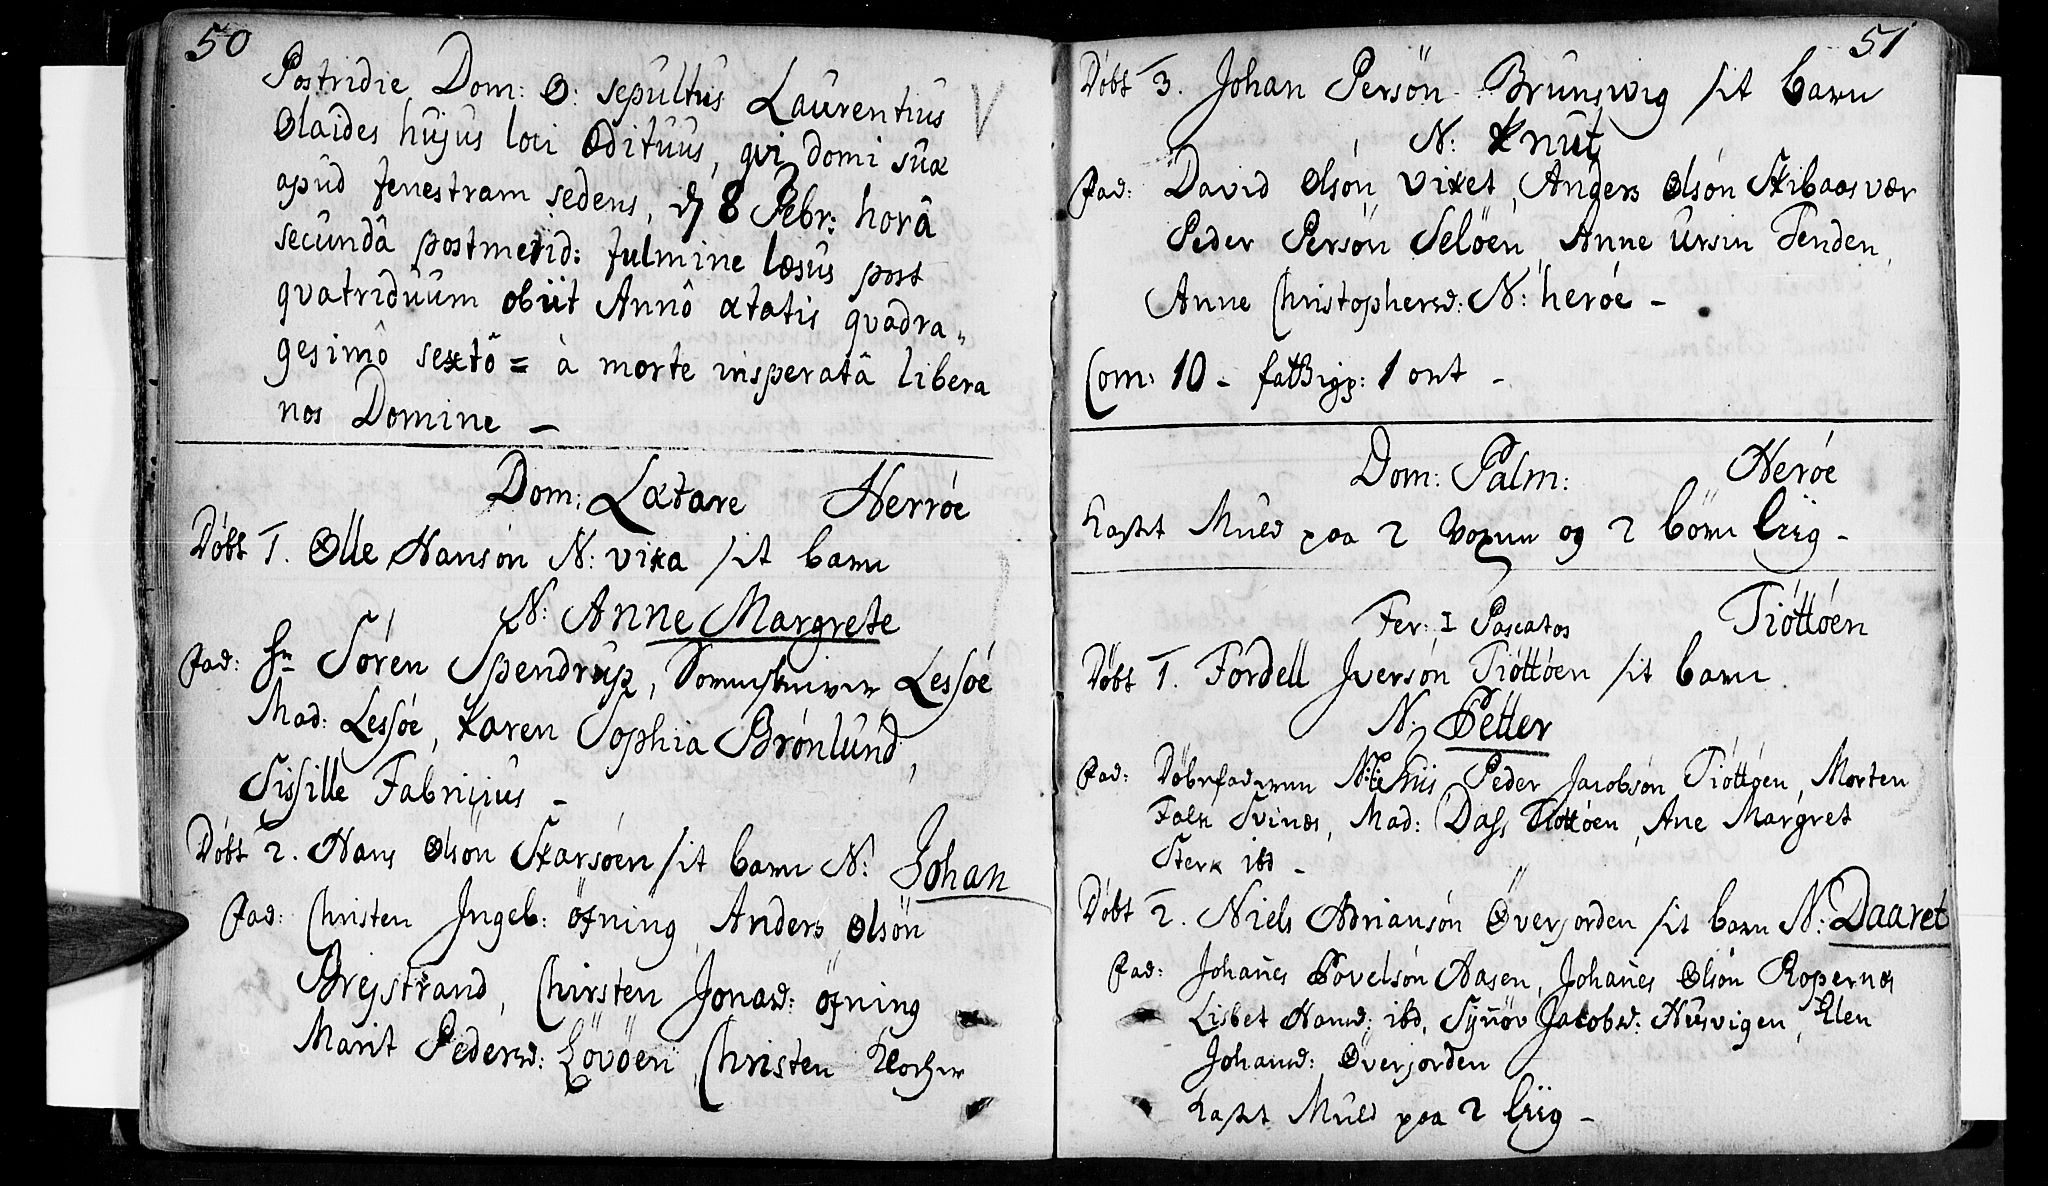 50
Postridie Dom: O: sepultus Laurentius
Olaides hujus loci Ædituus, qvi domi suæ
apud fenestram sedens, d 8 Febr: horâ
secundâ postmerid: fulmine læsus post
qvatriduum obiit Annô ætatis qvadra„
gesimô sextô = à morte insperatâ libera
nos Domine –
Dom: Lætare Herröe
Döbt 1. Olle Hansön N: vixa sit barn
N: Anne Margrete
Fad: Hr Sören Spendrup, Sornskriver Lessöe
Mad: Lessöe, Karen Sophia Brönlund,
Sissille Fabricius –
Döbt 2. Hans Olsön Skarsöen sit barn N: Johan
Fad: Christen Ingeb: öfning, Anders Olsön
Brejstrand, Chirsten Jonasd: öfning
Marit Pedersd: Lövöen, Christen Klocher
51
Döbt 3. Johan Persön Brunsvig sit barn
N: Knut
Fad: David Olsön vixet, Anders Olsön Skibaasvær
Peder Persön Selöen, Anne Ursin Tenden,
Anne Christophersd: N: heröe –
Com: 10 – fattigp: 1 ort –
Dom: Palm: Heröe
Kastet Muld paa 2 voxne og 2 börne Liig –
Fer: I Pascatos Tiöttöen
Döbt 1. Fordell Iversön Tiöttöen sit barn
N: Petter
Fad: Peder Jacobsön Tiöttöen, Morten
Falk Svinæs, Mad: Dass Tiöttöen, Ane Margret
Sterk ibd –
Döbt 2. Niels Adriansön Överjorden sit barn N: Daaret
Fad: Johanes Povelsön Aasen, Johanes Olsön Ropernæs
Lisbet Hansd: ibd, Synöv Jacobsd: Husvigen, Elen
Johansd: Överjorden
Kastet Muld paa 2 Liig –